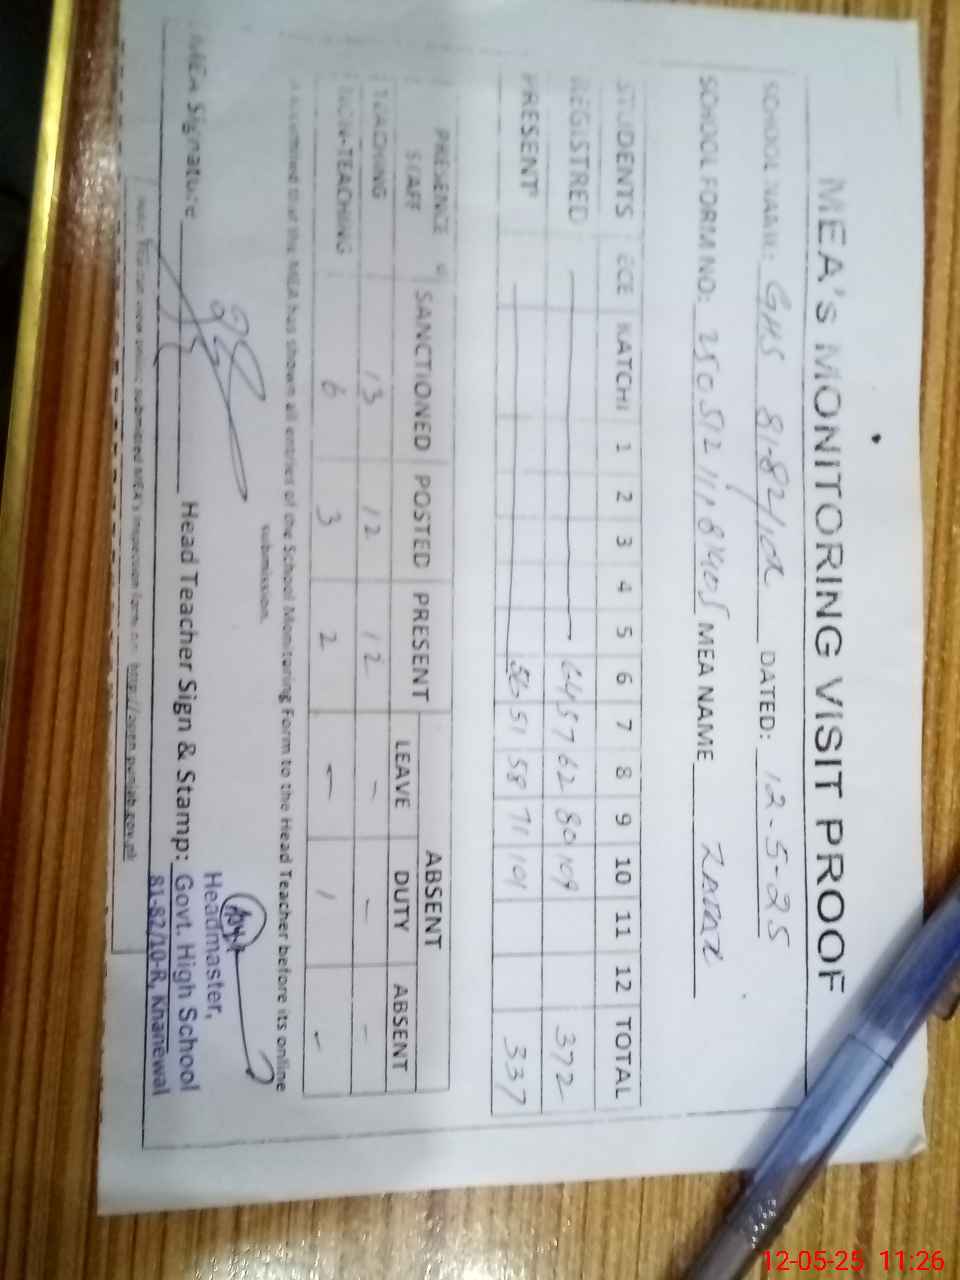 MEA's MONITORING VISIT PROOF
SCHOOL NAME: GHS 81-82/10R DATED: 12-5-25
SCHOOL FORM NO: MEA NAME
STUDENTS ECE KATCHI 1 2 3 4 5 6 7 8 9 10 11 12 TOTAL
REGISTRED 64 57 62 80 109 372
PRESENT 56 51 58 71 101 337
PRESENCE OF STAFF SANCTIONED POSTED PRESENT ABSENT
LEAVE DUTY ABSENT
TEACHING 13 12 12 - - -
NON-TEACHING 6 3 2 - 1 -
that the MEA has shown all entries of the School Monitoring Form to the Head Teacher before its online
submission.
MEA Signature Head Teacher Sign & Stamp:
Headmaster,
Govt. High School
81-82/10-R, Khanewal
submitted MEA's inspection form on: http://open.punjab.gov.pk
12-05-25 11:26